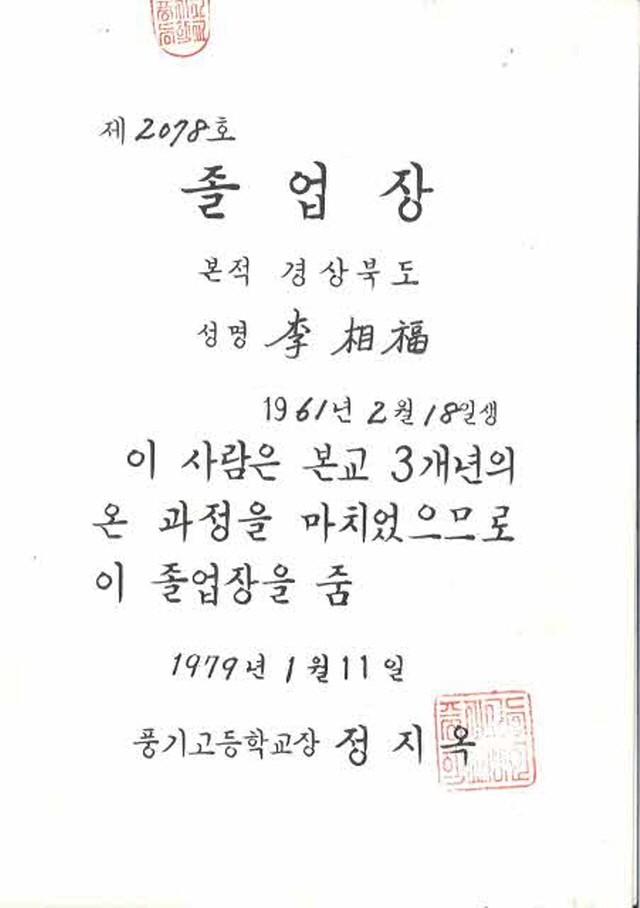 제 2078호
졸 업 장
본적 경상북도
성명 李相福
1961년 2월 18일생
이 사람은 본교 3개년의
온 과정을 마치었으므로
이 졸업장을 줌
1979년 1월 11일
풍기고등학교장 정지옥